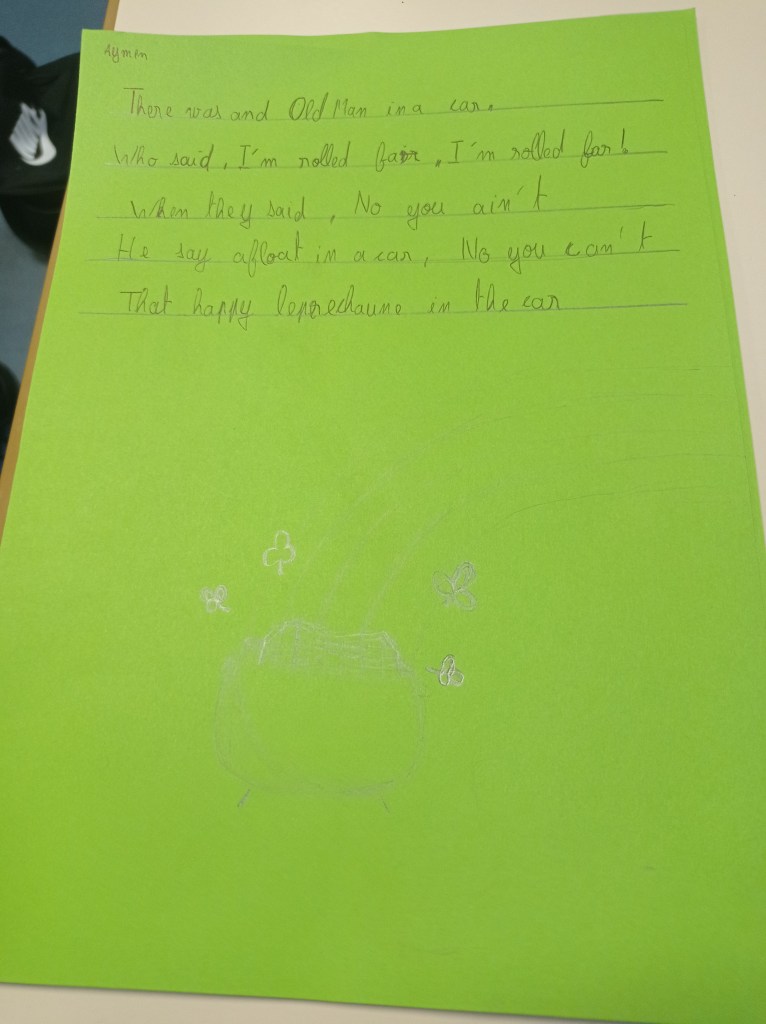 Aymen
There was and Old Man in a car.
Who said, I'm rolled far, I'm rolled far!
When they said, No you ain't
He say afloat in a car, No you can't
That happy leprechaune in the car